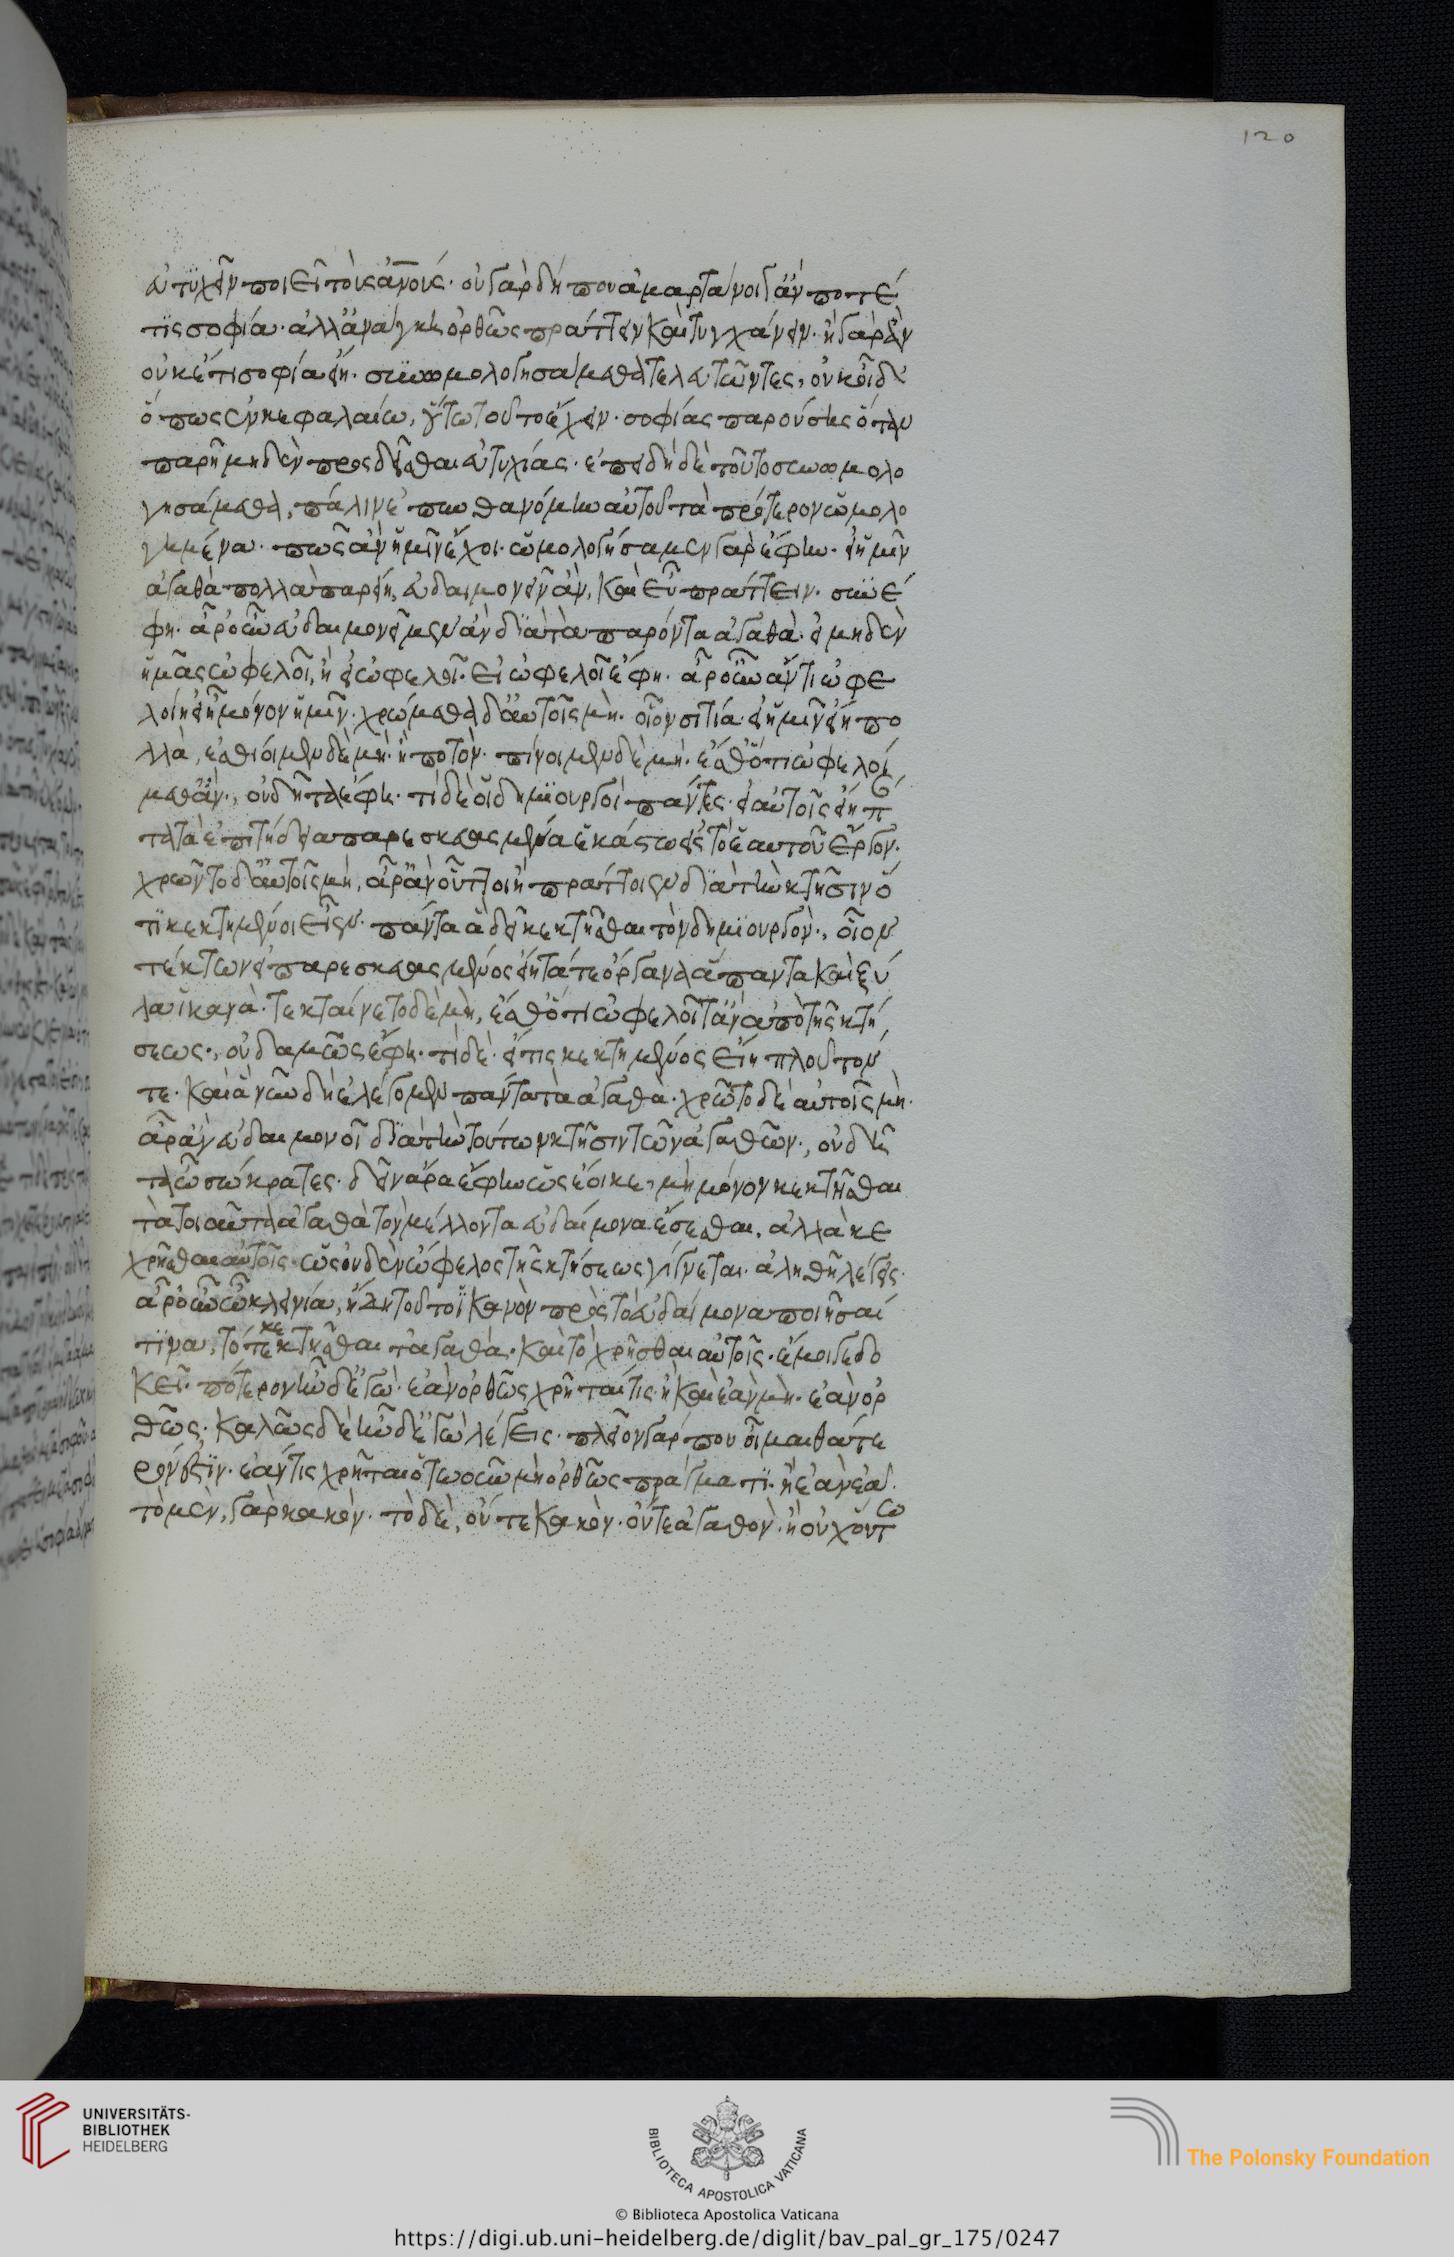 εὐτυχεῖν ποιεῖ τοὺς ἀν̅ους. οὐ γὰρ δήπου ἁμαρτάνοι γ' ἄν ποτέ
τϊς σοφία. ἀλλ' ἀνάγκη ὀρθῶς πράττειν καὶ τυγχάνειν. ἢ γὰρ ἂν
οὐκέτι σοφία εἴη. συνωμολογησάμεθα τελευτῶντες, οὐκ οἶδ'
ὅπως ἐν κεφαλαίω, οὕτω τοῦτο ἔχειν. σοφίας παρούσης ὅταν
παρῆ μηδὲν προςδεῖσθαι εὐτυχίας. ἐπειδὴ δὲ τοῦτο συνωμολο
γησάμεθα, πάλιν ἐπυνθανόμην αὐτοῦ τὰ πρότερον ὡμολο
γημένα. πῶς ἂν ἡμῖν ἔχοι. ὡμολογήσαμεν γὰρ ἔφην. εἰ ἡμῖν
ἀγαθὰ πολλὰ παρείη, εὐδαιμονεῖν ἂν, καὶ εὖ πράττειν. συνέ
φη. ἆρ' οὖν εὐδαιμονεῖμεν ἂν διὰ τὰ παρόντα ἀγαθὰ. εἰ μηδὲν
ἡμᾶς ὠφελοῖ, ἢ εἰ ὠφελοῖ. εἰ ὠφελοῖ ἔφη. ἆρ' οὖν ἄν τι ὠφε
λοίη εἰ εἴη μόνον ἡμῖν. χρώμεθα δ' αὐτοῖς μὴ. οἷον σιτία. εἰ ἡμῖν εἴη πο
λλὰ, ἐσθίοιμεν δὲ μή. ἢ ποτὸν. πίνοιμεν δὲ μή. ἔσθ' ὅτι ὠφελοί
μεθ' ἄν., οὐ δῆτα ἔφη. τί δὲ οἱ δημϊουργοὶ πάντες. εἰ αὐτοῖς εἴη π
τα τὰ ἐπιτήδεια παρεσκευασμένα ἑκάστω εἰς τὸ ἑαυτοῦ ἔργον.
χρῶντο δ' αὐτοῖς μή, ἆρ' ἂν οὗτοι εὖ πράττοιεν διὰ τὴν κτῆσιν ὅ
τϊ κεκτημένοι εἶεν. πάντα ἃ δεῖ κεκτῆσθαι τὸν δημϊουργὸν., οἷον
τέκτων εἰ παρεσκευασμένος εἴη τά τε ὄργανα ἅπαντα καὶ ξύ
λα ἱκανὰ. τεκταίνετο δὲ μὴ, ἔσθ' ὅτι ὠφελοῖτ' ἂν ἀπὸ τῆς κτή
σεως., οὐδαμῶς ἔφη. τί δέ. εἴ τις κεκτημένος εἴη πλοῦτον
τε. καὶ ἃ νῦν δὴ ἐλέγομεν πάντα τὰ ἀγαθὰ. χρῶτο δὲ αὐτοῖς μὴ.
ἆρ' ἂν εὐδαιμονοῖ διὰ τὴν τούτων κτῆσιν τῶν ἀγαθῶν., οὐ δῆ
τα ὦ σώκρατες. δεῖν ἄρα ἔφην ὡς ἔοικε, μὴ μόνον κεκτῆσθαι
τὰ τοιαῦτα ἀγαθὰ τὸν μέλλοντα εὐδαίμονα ἔσεσθαι, ἀλλὰ κε
χρῆσθαι αὐτοῖς. ὡς οὐδὲν ὤφελος τῆς κτήσεως γίγνεται. ἀληθῆ λέγεις.
ἆρ' οὖν ὦ κλεινία, ἤδη τοῦτο ἱκανὸν πρὸς τὸ εὐδαίμονα ποιῆσαί
τϊνα, τό τε κεκτῆσθαι τἀγαθά. καὶ τὸ χρῆσθαι αὐτοῖς. ἔμοιγε δο
κεῖ. πότερον ἦν δ' ἐγὼ. ἐὰν ὀρθῶς χρῆταί τις ἢ καὶ ἐὰν μὴ. ἐὰν ὀρ
θῶς. καλῶς δὲ ἦν δ' ἐγὼ λέγεις. πλεῖον γάρ που οἶμαι θάτε
ρόν ἐστϊν. ἐάν τις χρῆται ὁτωοῦν μὴ ὀρθῶς πράγματϊ. ἢ ἐὰν ἐᾶ.
τὸ μὲν, γὰρ κακόν. τὸ δὲ, οὔτε κακὸν. οὔτε ἀγαθὸν. ἢ οὐχ οὕτω
120
UNIVERSITÄTS-
BIBLIOTHEK
HEIDELBERG
BIBLIOTECA APOSTOLICA VATICANA
The Polonsky Foundation
© Biblioteca Apostolica Vaticana
https://digi.ub.uni-heidelberg.de/diglit/bav_pal_gr_175/0247